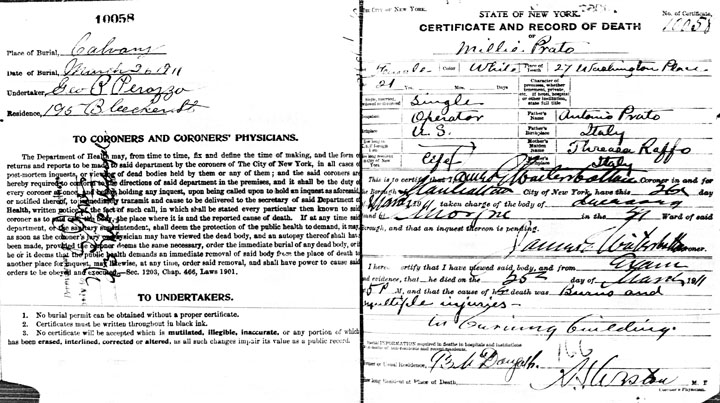 10058
Place of Burial, Calvary
Date of Burial, March 26 1911
Undertaker, Geo R Perazzo
Residence, 195 Bleecker St
TO CORONERS AND CORONERS' PHYSICIANS.
The Department of Health may, from time to time, fix and define the time of making, and the form of
returns and reports to be made to said department by the coroners of The City of New York, in all cases of
post-mortem inquests, or viewing of dead bodies held by them or any of them; and the said coroners are
hereby required to the directions of said department in the premises, and it shall be the duty of
every coroner at once, upon being called upon to hold an inquest as aforesaid,
or notified thereof, to immediately transmit and cause to be delivered to the secretary of said Department of
Health, written notice of the fact of such call, in which shall be stated every particular then known to said
coroner as to the place where it is and the reported cause of death. If at any time said
department, or superintendent, shall deem the protection of the public health to demand, it may,
as soon as the coroner's jury or physician may have viewed the dead body, and an autopsy thereof shall have
been made, provided the coroner deems the same necessary, order the immediate burial of any dead body, or if
he or it deems that the public health demands an immediate removal of said body from the place of death to
another place for inquest, may likewise, at any time, order said removal, and shall have power to cause said
orders to be obeyed and executed.—Sec. 1203, Chap. 466, Laws 1901.
TO UNDERTAKERS.
1. No burial permit can be obtained without a proper certificate.
2. Certificates must be written throughout in black ink.
3. No certificate will be accepted which is mutilated, illegible, inaccurate, or any portion of which
has been erased, interlined, corrected or altered, as all such changes impair its value as a public record.
The City of New York.
STATE OF NEW YORK.
No. of Certificate,
10058
CERTIFICATE AND RECORD OF DEATH
OF
Millie Prato
Female Color White Place of Death 27 Washington Place
21 Yrs. Mos. Days
Character of premises, whether tenement, private, etc. If hotel, hospital or other institution, state full title
Single
Operator Father's Name Antonio Prato
U. S. Father's Birthplace Italy
Mother's Maiden Name Raffo
Life Italy
This is to certify that I, Coroner in and for
the Borough of Manhattan City of New York, have this 26th day
March 1911 taken charge of the body of deceased
found at Morgue in the 21 Ward of said
Borough, and that an inquest thereon is pending.
Coroner.
I hereby certify that I have viewed said body, and from Exam
and evidence, that she died on the 25th day of March 1911
5 P M, and that the cause of her death was Burns and
multiple injuries—
in burning building.
Special INFORMATION required in deaths in hospitals and institutions
or Usual Residence,
How long Resident at Place of Death,
M. D.
Coroner's Physician.